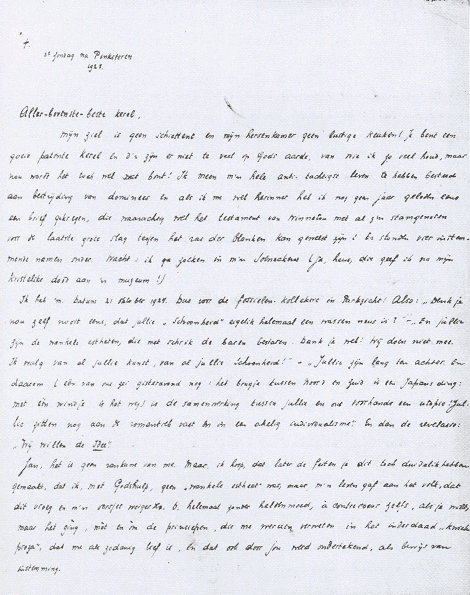 †.
1ste zondag na Pinksteren
1928.
Aller-bovenste-beste kerel,
Mijn ziel is geen schiettent en mijn hersenkamer geen lustige keuken! Je bent een
goeie patente kerel en d'r zijn er niet te veel op Gods aarde, van wie ik zo veel houd, maar
nou wordt het toch wel wat bont! Ik meen m'n hele anti-burgerlijke leven te hebben besteed
aan bestrijding van dominees en als ik me wel herinner heb ik nog geen jaar geleden eens
een brief gekregen, die waarachtig wel het testament van Winnetou met al zijn stamgenoten
voor de laatste grote slag tegen het ras der Blanken kan geweest zijn! Er stonden vier
namen onder. Wacht! ik ga zoeken in m'n (Ja, heus, die geef ik na mijn
kristelike dood aan 'n muzeum!)
Ik heb 'm! Datum 21 oktober 1924. Dus voor de fossielen-kollektie in : Also: „Denk je
nou zelf nooit eens, dat jullie „Schoonheid" eigelik helemaal een wassen neus is?" – „En jullie
zijn de wankele estheten, die met schrik de baren bestaren. Dank je wel! Wij doen niet mee.
Ik walg van al jullie kunst, van al jullie Schoonheid!" – „Jullie zijn lang ten achter. En
daarom (één van ons zei gisteravond nog: het brugje tussen Noord en Zuid is een Japans ding:
met één windje is het weg) is de samenwerking tussen jullie en ons voorhands een utopie! Jul-
lie zitten nog aan de romantiek vast en in een akelig individualisme". En dan de revelatie:
„Wij willen de Idee".
Jan, het is geen rankune van me. Maar ik hoop, dat later de feiten je dit toch duidelik hebben
gemaakt, dat ik, met Godshulp, geen „wankele estheet" was, maar m'n leven gaf aan het volk, dat
dit vroeg en m'n versjes neerzette. O, helemaal zonder heldenmoed, in zelfs, als je wilt,
maar het ging, niet en om de prinsiepen, die me werden verweten in het inderdaad „kwade
proza", dat me als zodanig lief is, en dat ook door jou werd ondertekend, als bewijs van
instemming.